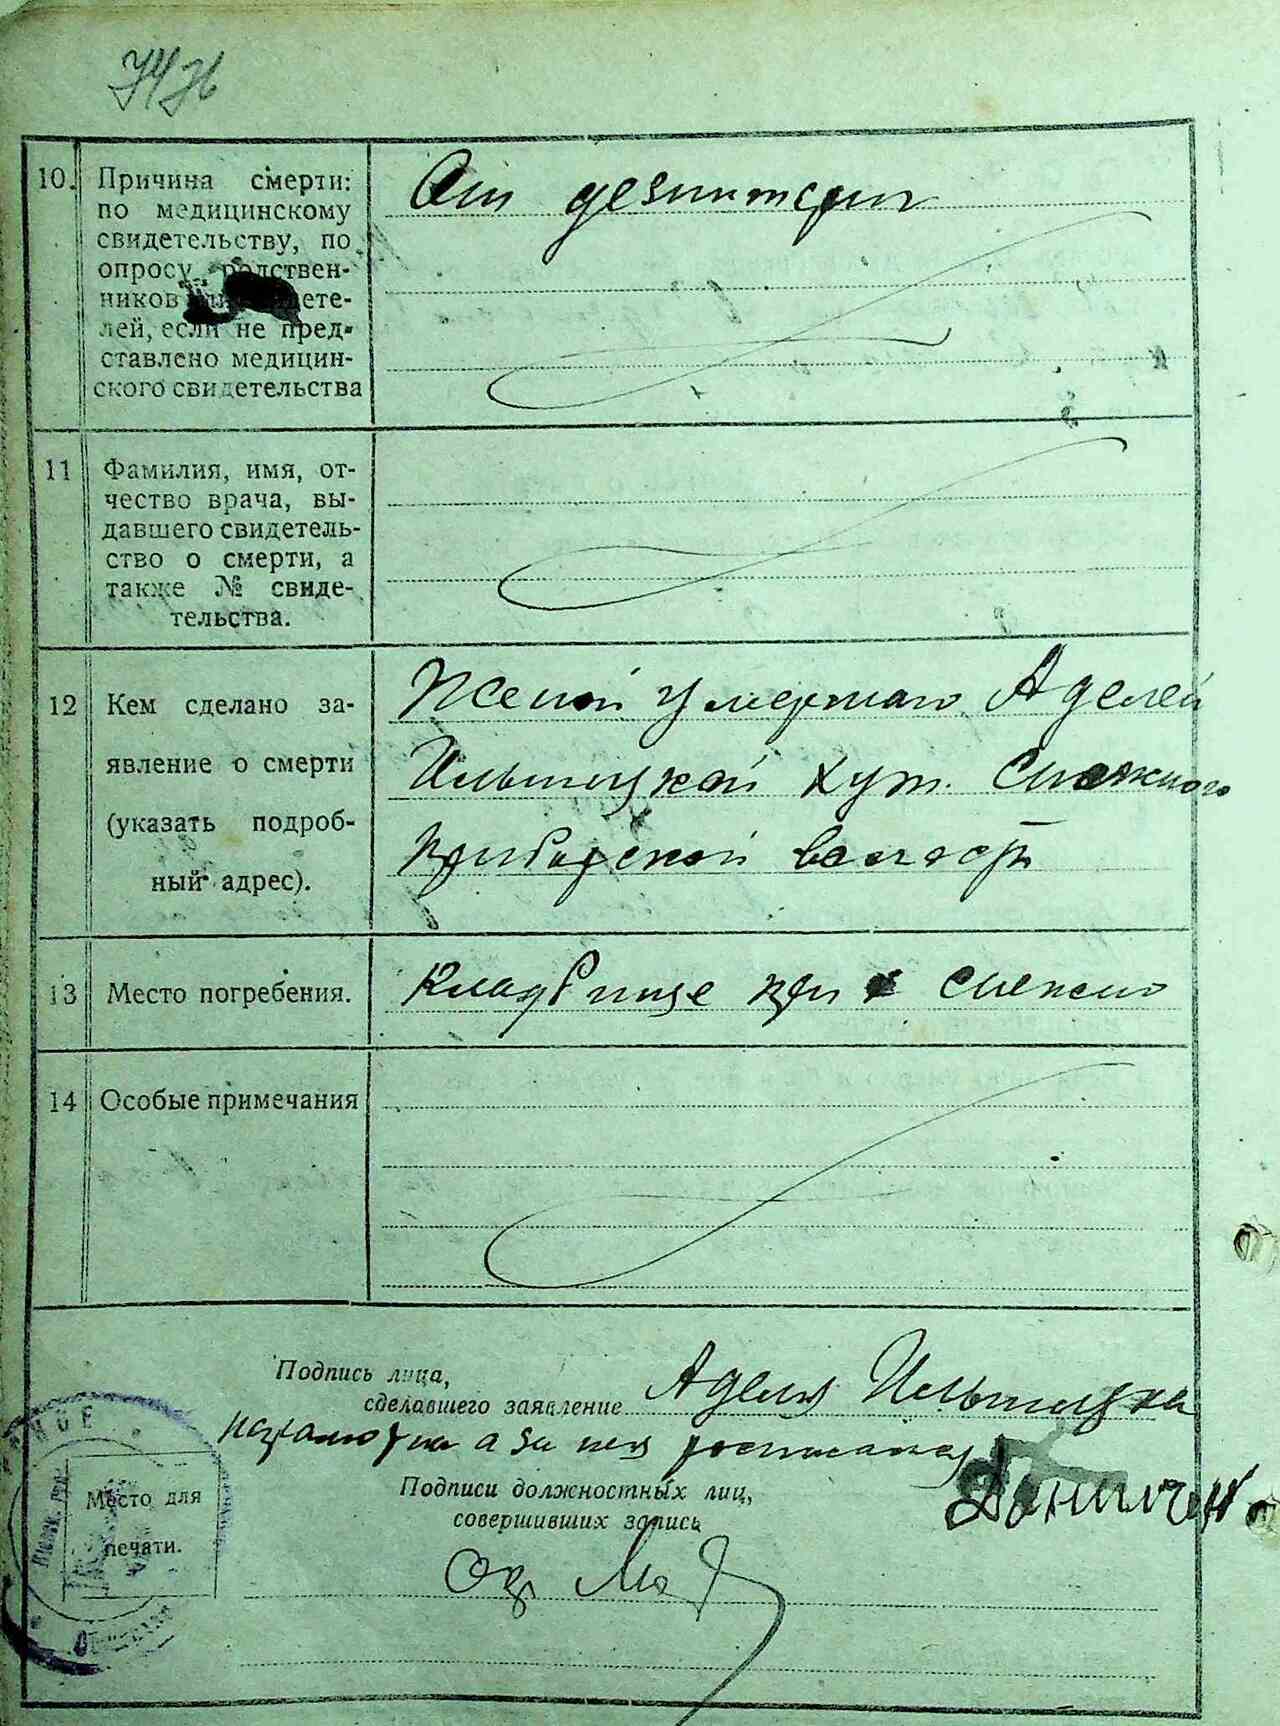 10. Причина смерти:
по медицинскому
свидетельству, по
опросу родствен-
ников
лей, если не пред-
ставлено медицин-
ского свидетельства
От дезинтерии
11 Фамилия, имя, от-
чество врача, вы-
давшего свидетель-
ство о смерти, а
также № свиде-
тельства.
12 Кем сделано за-
явление о смерти
(указать подроб-
ный адрес).
Женой умершаго Аделей
Ильницкой хут.
волости
13 Место погребения.
Кладбище при
14 Особые примечания
Подпись лица,
сделавшего заявление Аделя Ильницка
а за нея
Подписи должностных лиц,
совершивших запись
Место для
печати.